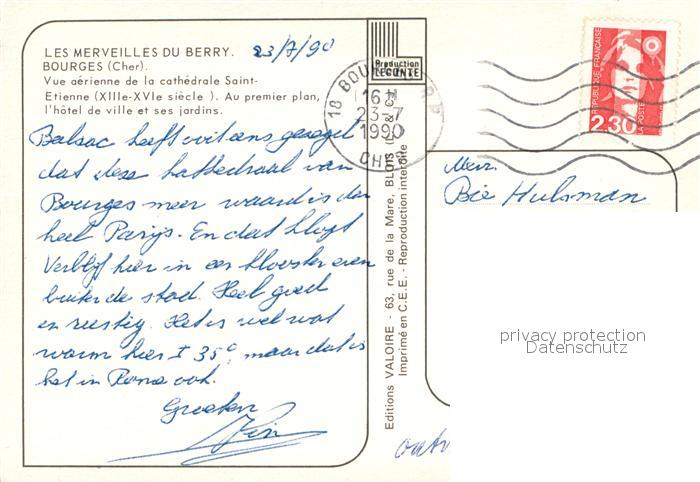 LES MERVEILLES DU BERRY.
BOURGES (Cher).
Vue aérienne de la cathédrale Saint-
Etienne (XIIIe-XVIe siècle). Au premier plan,
l'hôtel de ville et ses jardins.
23/7/90
Production
LECONTE
18 BOURGES R.P
16 H
23-7
1990
CHER
RÉPUBLIQUE FRANÇAISE
2,30
LA POSTE
Balsac heeft ooit eens gezegd
dat deze kathedraal van
Bourges meer waard is dan
heel Parijs. En dat klopt
Verblijf hier in een klooster even
buiten de stad. Heel goed
en rustig. Het is wel wat
warm hier ± 35° maar dat is
het in Rome ook.
Groeten
Editions VALOIRE - 63, rue de la Mare, BLOIS
Imprimé en C.E.E. - Reproduction interdite
Mevr.
Bie Hulsman
privacy protection
Datenschutz